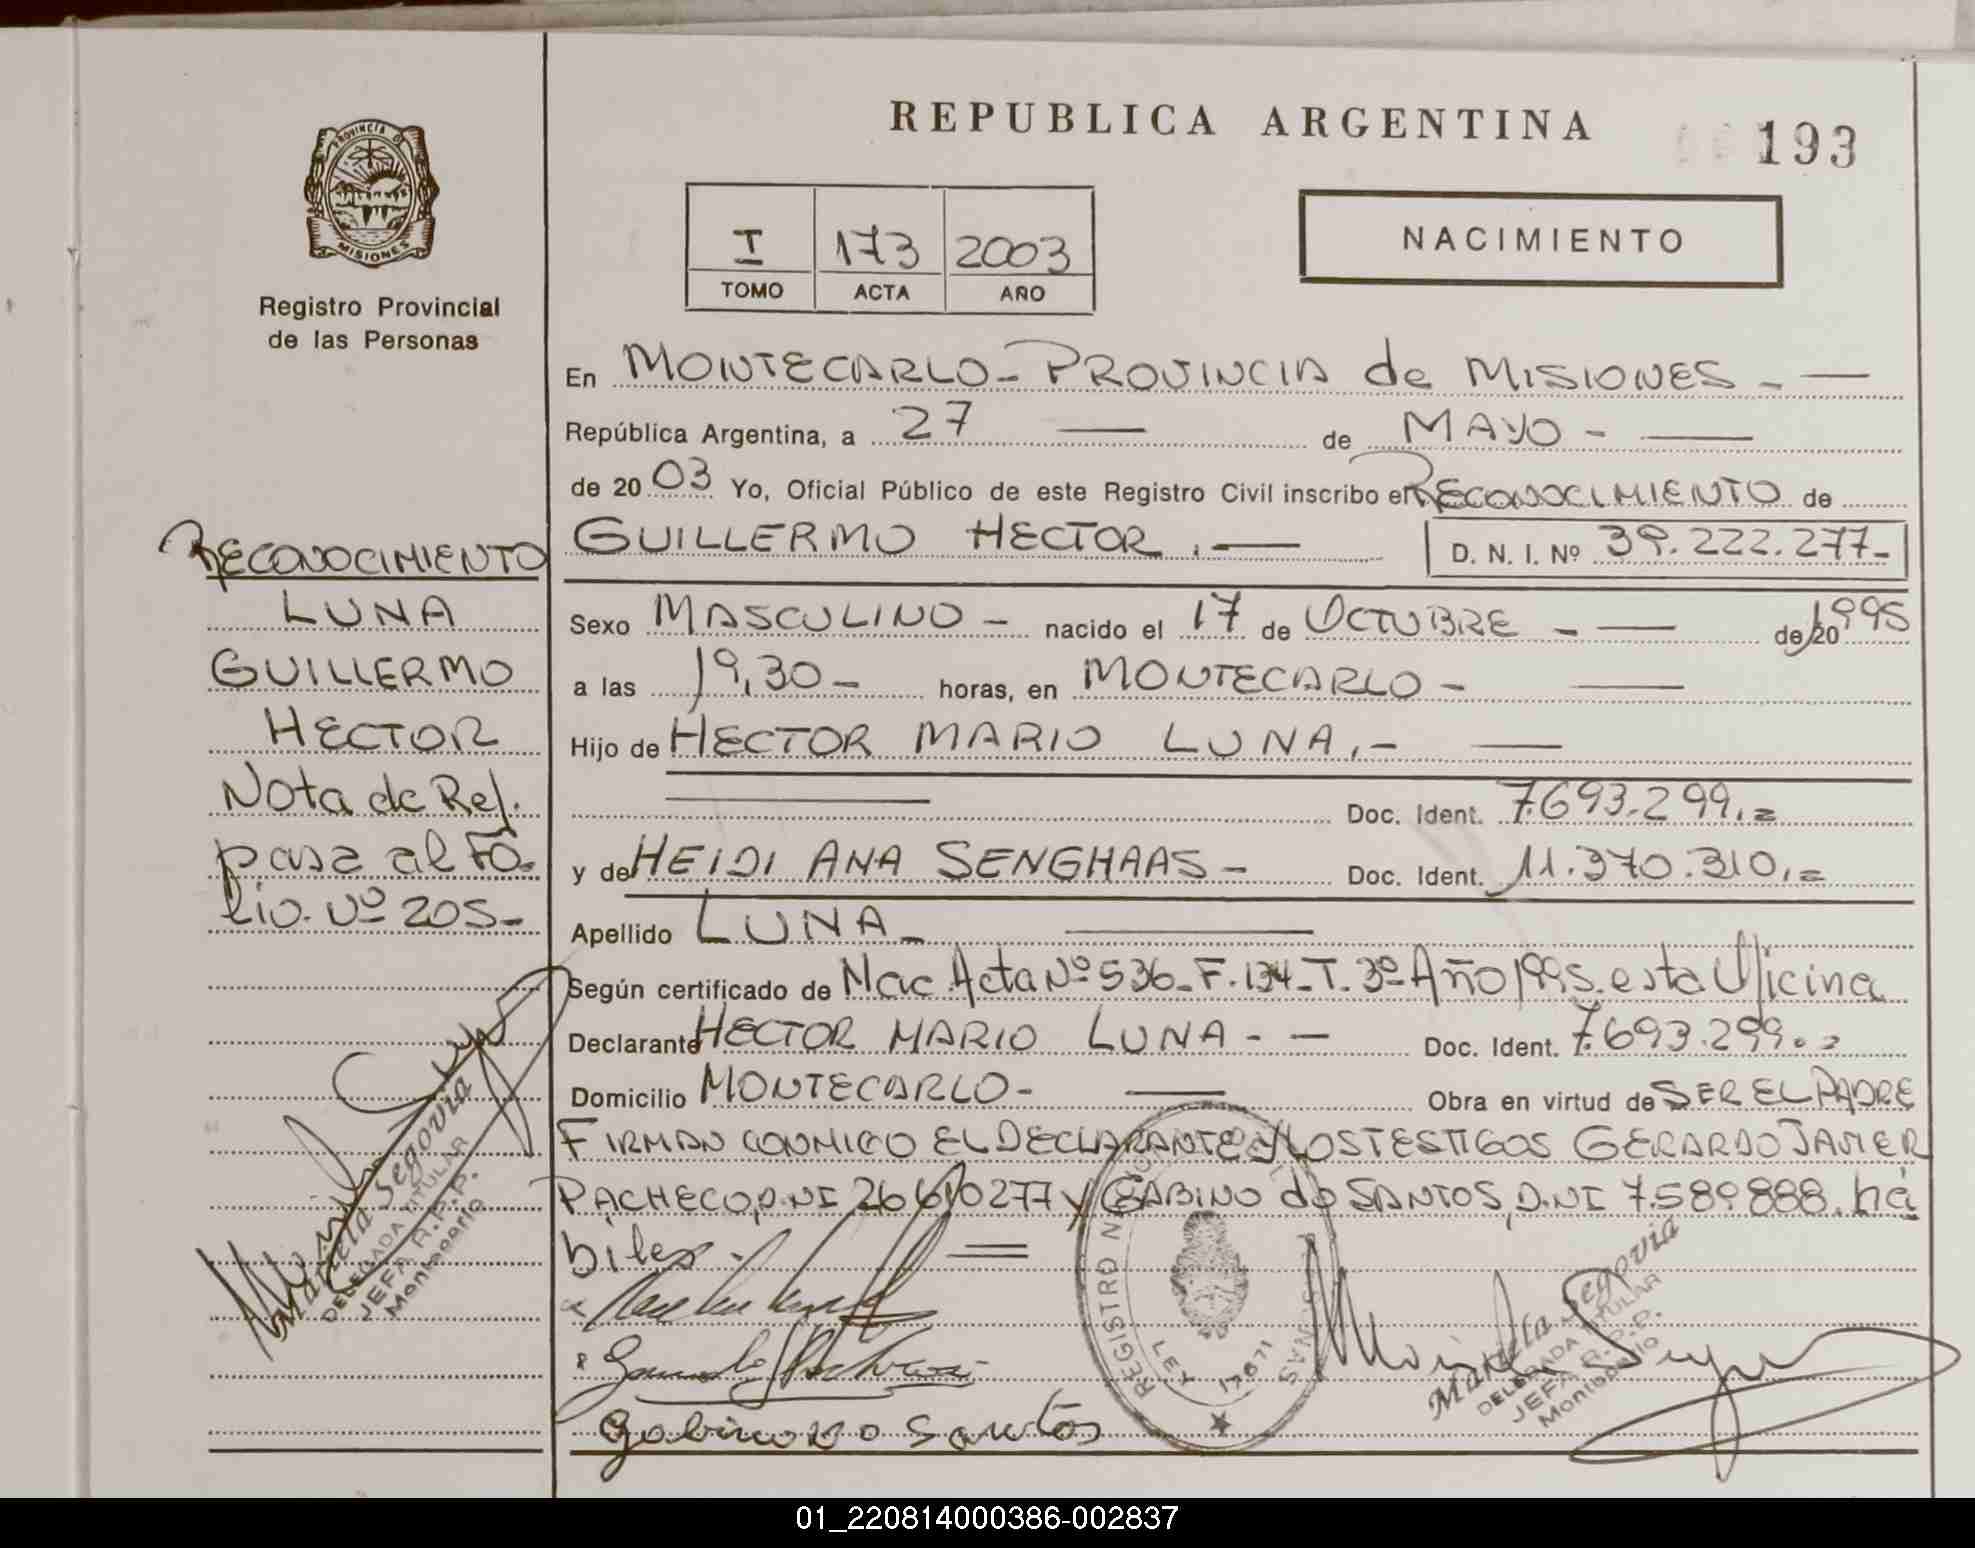 REPUBLICA ARGENTINA
193
PROVINCIA DE
MISIONES
Registro Provincial
de las Personas
I 173 2003
TOMO ACTA AÑO
NACIMIENTO
En MONTECARLO - PROVINCIA de MISIONES - —
República Argentina, a 27 — de MAYO - —
de 20 03 Yo, Oficial Público de este Registro Civil inscribo el RECONOCIMIENTO de
GUILLERMO HECTOR .— D. N. I. Nº 39.222.277-
Sexo MASCULINO - nacido el 17 de OCTUBRE - — de 20 1995
a las 19,30 - horas, en MONTECARLO - —
Hijo de HECTOR MARIO LUNA.- —
— Doc. Ident. 7.693.299.=
y de HEIDI ANA SENGHAAS - Doc. Ident. 11.370.310.=
Apellido LUNA - —
Según certificado de Nac. Acta Nº 536 - F. 134 - T. 3º Año 1995. esta Oficina
Declarante HECTOR MARIO LUNA - — Doc. Ident. 7.693.299.=
Domicilio MONTECARLO - — Obra en virtud de SER EL PADRE
FIRMAN CONMIGO EL DECLARANTE Y LOS TESTIGOS GERARDO JAVIER
PACHECO, D.NI 26610277 y GABINO do SANTOS, D.NI 7.589.888. há
biles. =
Gabino do Santos
REGISTRO
17671
Mariela Segovia
DELEGADA TITULAR
JEFA R.P.P.
Montecarlo
RECONOCIMIENTO
LUNA
GUILLERMO
HECTOR
Nota de Ref.
pasa al Fo-
lio. Nº 205 -
Mariela Segovia
DELEGADA TITULAR
JEFA R.P.P.
Montecarlo
01_220814000386-002837